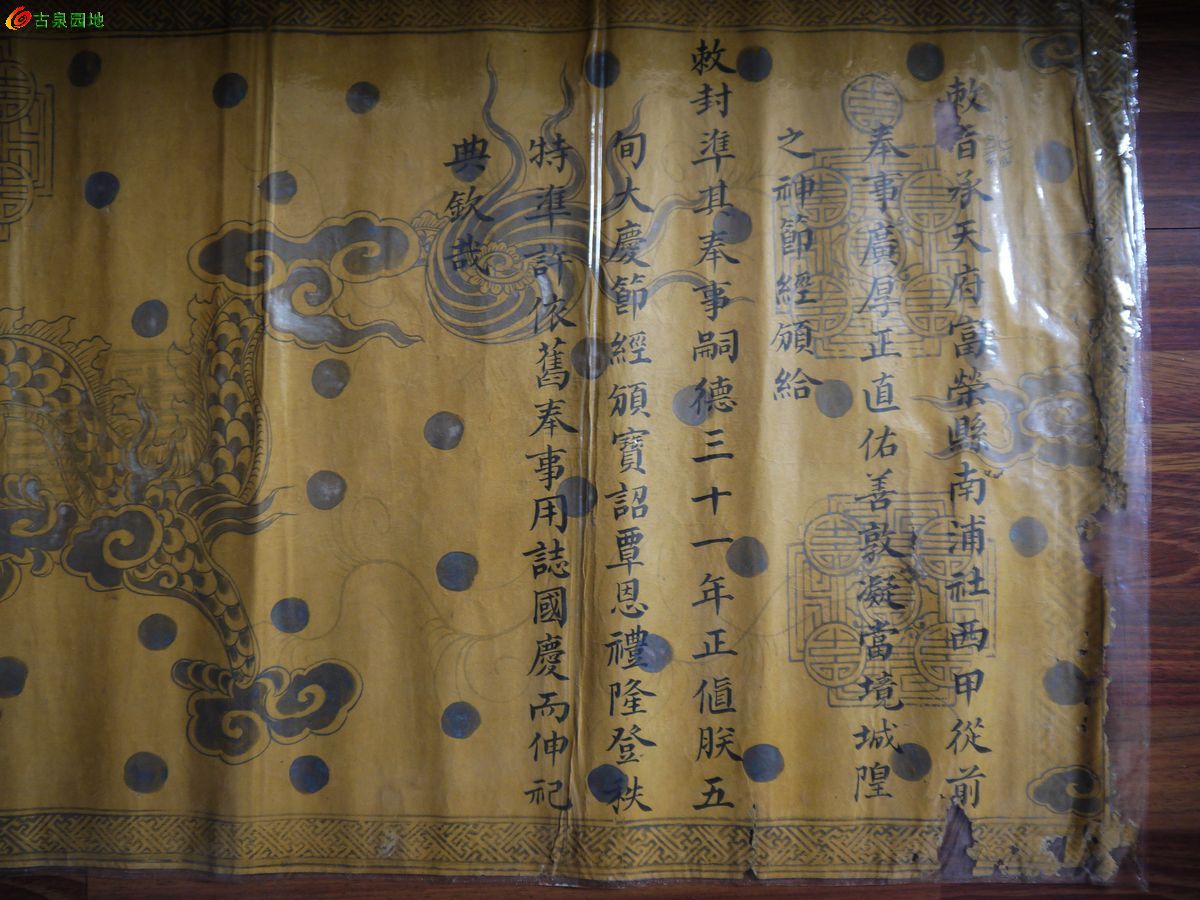 古泉园地
敕旨承天府富榮縣南浦社西甲從前
奉事廣厚正直佑善敦凝當境城隍
之神節經頒給
敕封準其奉事嗣德三十一年正値朕五
旬大慶節經頒寶詔覃恩禮隆登秩
特準許依舊奉事用誌國慶而伸祀
典欽哉